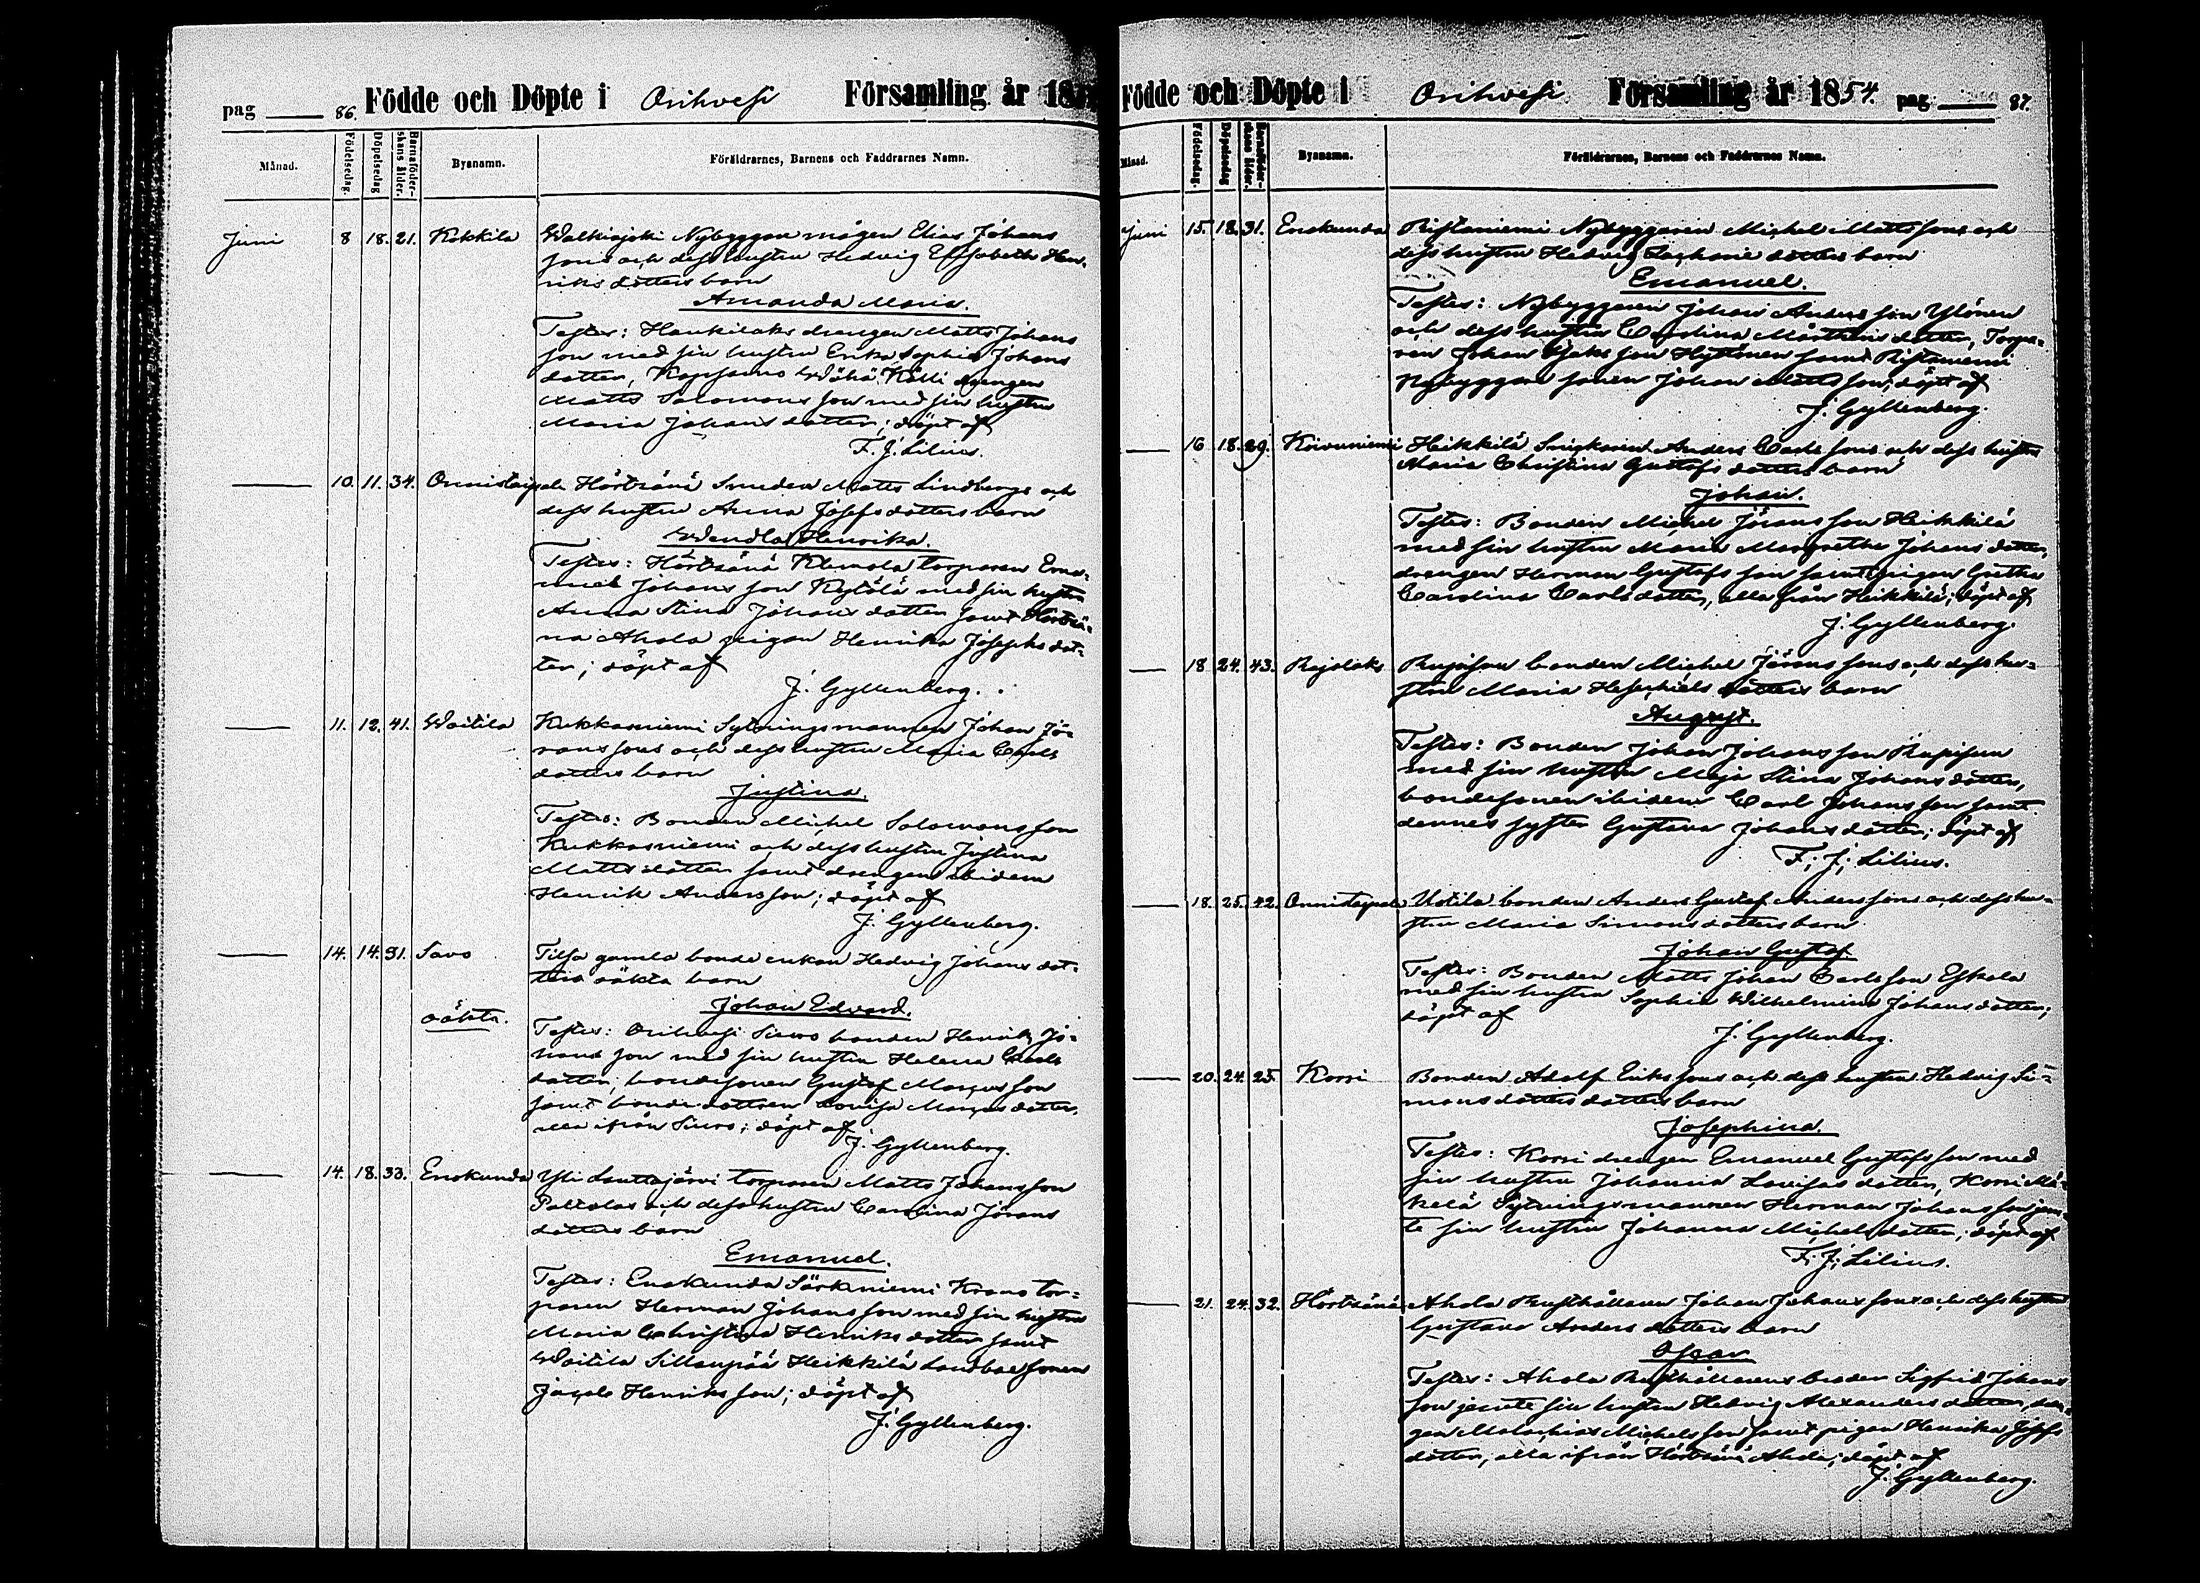 pag 86. Födde och Döpte i Orihvesi Församling år 18
Månad. Födelsedag. Döpelsedag Barnaföder-skans ålder. Bysnamn. Föräldrarnes, Barnens och Faddrarnes Namn.
Juni 8 18. 21. Kokkila Walkiajoki Nybyggare mågen Elias Johans
sons och dess hustru Hedvig Elisabeth Hen-
riks dotters barn
Amanda Maria.
Testes: Haukilaks drengen Matts Johans
son med sin hustru Erika Sophia Johans
dotter, Wähä Källi drengen
Matts Salomons son med sin hustru
Maria Johans dotter; döpt af
F. J. Lilius.
10. 11. 34. Onnistaipale Hörtsänä Smeden Matts Lindbergs och
dess hustru Anna Josefs dotters barn
Wendla Henrika.
Testes: Hörtsänä Klemola torparen Ema-
nuel Johans son Kytölä med sin hustru
Anna Stina Johans dotter samt Hörtsä-
nä Ahola pigan Henrika Josephs dot-
ter; döpt af
J. Gyllenberg.
11. 12. 41. Woitila Kukkasniemi Sytningsmannen Johan Jö-
rans sons och dess hustru Maria Carls
dotters barn
Justina.
Testes: Bonden Michel Salomons son
Kukkasniemi och dess hustru Justina
Matts dotter samt drengen ibidem
Henrik Anders son; döpt af
J. Gyllenberg.
14. 14. 31. Savo Tilsa gamla bonde enkan Hedvig Johans dot-
ters oäkta barn
oäkta.
Johan Edvard.
Testes: Orihvesi Siuro bonden Henrik Jo-
hans son med sin hustru Helena Carls
dotter, bondesonen Gustaf Marcus son
samt bonde dottren Lovisa Marcus dotter,
alla ifrån Siuro; döpt af
J. Gyllenberg.
14. 18. 33. Enokunda Yli Lauttajärvi torparen Matts Johans son
Paltolas och dess hustru Carolina Jörans
dotters barn
Emanuel.
Testes: Enokunda Särkiniemi Krono tor-
paren Herman Johans son med sin hustru
Maria Christina Henriks dotter samt
Woitila Sillanpää Heikkilä Landbosonen
Jacob Henriks son; döpt af
J. Gyllenberg.
Födde och Döpte i Orihvesi Församling år 1854. pag 87.
Månad. Födelsedag. Döpelsedag Barnaföder-skans ålder. Bysnamn. Föräldrarnes, Barnens och Faddrarnes Namn.
Juni 15. 18. 31. Enokunda Ristaniemi Nybyggaren Michel Matts sons och
dess hustru Hedvig Zacharie dotters barn
Emanuel.
Testes: Nybyggaren Johan Anders son Ylönen
och dess hustru Carolina Mårthens dotter, Torpa-
ren Johan son Hyttinen samt Ristaniemi
Nybyggare sonen Johan Matts son; döpt af
J. Gyllenberg.
16 18. 29. Koivuniemi Heikkilä Anders Carls sons och dess hustru
Maria Christina Gustafs dotters barn
Johan.
Testes: Bonden Michel Jörans son Heikkilä
med sin hustru Maria Margretha Johans dotter,
drengen Herman Gustafs son samt pigan Gretha
Carolina Carls dotter, alla från Heikkilä; döpt af
J. Gyllenberg.
18. 24. 43. Rajalaks Rupisson bonden Michel Jörans sons och dess hu-
stru Maria Hesekiels dotters barn
August.
Testes: Bonden Johan Johans son Rupisson
med sin hustru Maja Stina Johans dotter,
bondesonen ibidem Carl Johans son samt
dennes syster Gustava Johans dotter; döpt af
F. J. Lilius.
18. 25. 42. Onnistaipale Uotila bonden Anders Gustaf Anders sons och dess hu-
stru Maria Simons dotters barn
Johan Gustaf.
Testes: Bonden Matts Johan Carls son Eskola
med sin hustru Sophia Wilhelmina Johans dotter;
döpt af
J. Gyllenberg.
20. 24. 25. Korsi Bonden Adolf Eriks sons och dess hustru Hedvig Si-
mons dotters dotters barn
Josephina.
Testes: Korsi drengen Emanuel Gustafs son med
sin hustru Johanna Lovisas dotter, Korsi Mä-
kelä Sytningsmannen Herman Johans son jem-
te sin hustru Johanna Michels dotter; döpt af
F. J. Lilius.
21. 24. 32. Hörtsänä Ahola Rusthållaren Johan Johans sons och dess hustru
Gustava Anders dotters barn
Oscar
Testes: Ahola Rusthållarens broder Sigfrid Johans
son jemte sin hustru Hedvig Alexanders dotter, dren-
gen Malachias Michels son samt pigan Henrika Josefs
dotter, alla ifrån Hörtsänä Ahola; döpt af
J. Gyllenberg.